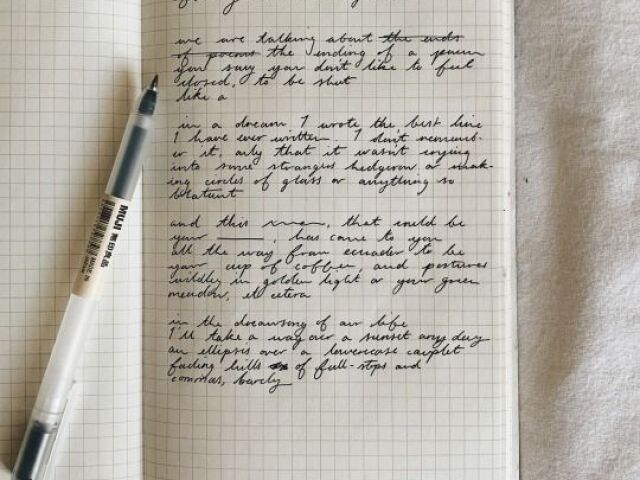 we are talking about the ends
of poems the ending of a poem
you say you don't like to feel
closed, to be shut
like a
in a dream I wrote the best line
I have ever written. I don't rememb-
er it, only that it wasn't crying
into some strangers hedgerow or mak-
ing circles of glass or anything so
blatant
and this, that could be
your ____, has come to you
all the way from ecuador to be
your cup of coffee, and postures
wildly in golden light or your green
meadow, et cetera
in the dreamsong of our life
I'll take a over a sunset any day
an ellipsis over a lowercase couplet
fading hills of full-stops and
commas, barely
MUJI 無印良品
MADE IN
JAPAN